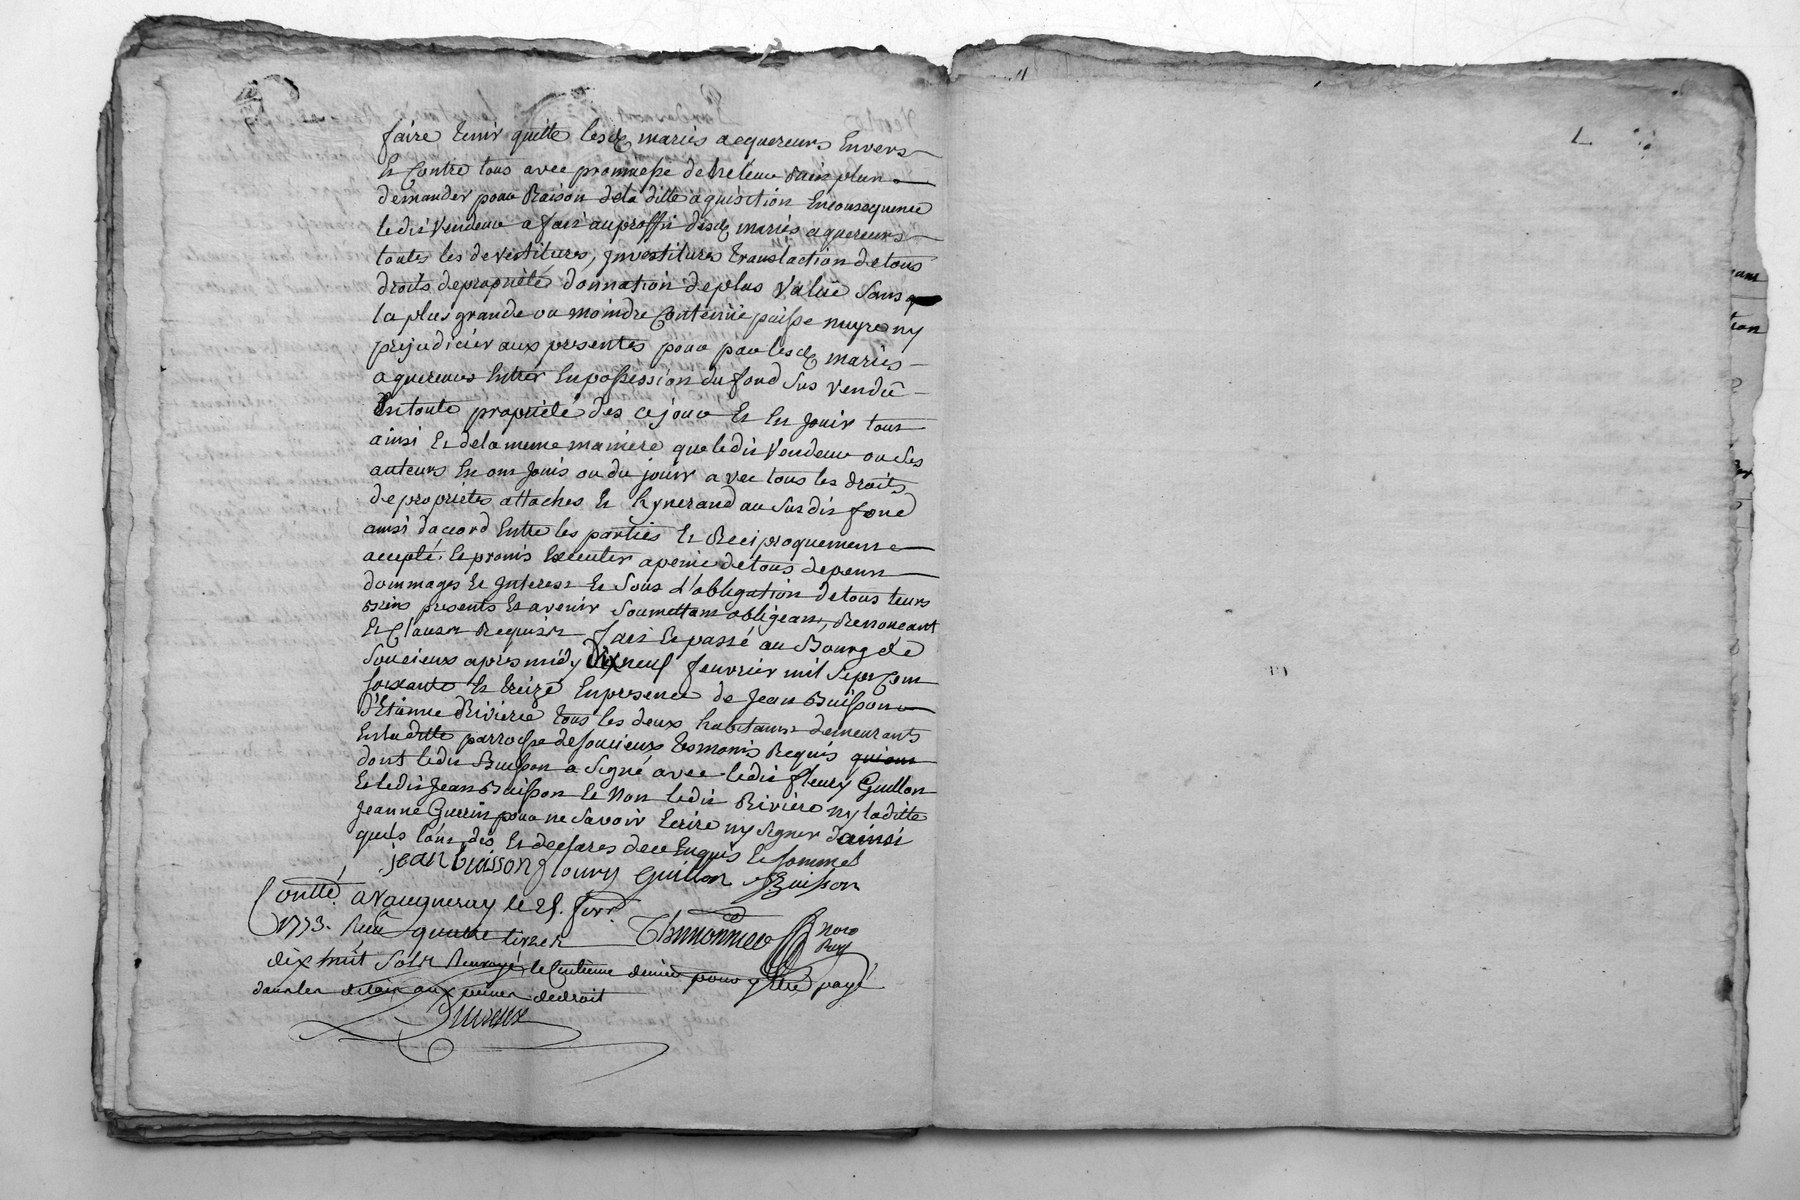 faire tenir quitte lesd mariés acquereurs Envers
Et Contre tous avec prommesse de ne leur rien plus
demander pour Raison de la ditte aquisition Enconsequence
ledit Vendeur a fait au proffit desd mariés aquereurs
toutes les devestitures, Investitures translaction de tous
droits de propriété donnation de plus Valüe Sans q
la plus grande ou moindre Contenüe puisse nuyre ny
prejudicier aux presentes pour par lesd mariés
aquereurs Entrer En possession du fond Sus vendû
En toute propriété des ce jour Et En Jouir tout
ainsi Et de la meme maniere que ledit Vendeur ou Ses
auteurs En ont Jouis ou du jouir avec tous les droits
de proprietés attachés Et au Susdit fond
ainsi d'accord Entre les parties Et Reciproquement
accepté. Et promis Executer a peine de tous depens
dommages Et Interest Et Sous l'obligation de tous leurs
Biens presents Et avenir Soumettant obligeant, Renonceant
Et Clauses Requises fait Et passé au Bourg de
Soucieux après midy Dix neuf feuvrier mil Sept Cent
Soixante Et treize En presence de Jean Buisson
d'Etienne Rivierre tous les deux habitants demeurants
En la ditte parroisse de Soucieux temoins Requis qui ont
dont ledit Buisson a Signé avec ledit fleury Guillon
Et ledit Jean Buisson Et Non ledit Riviere ny la ditte
Jeanne Guerin pour ne Savoir Ecrire ny Signer ainsi
quils l'ont dis Et declarés de ce Enquis Et Sommés
jean buisson floury Guillon JBuisson
Contllé a Vaugneray le 25. fevr.
1773. Reçu quatre livres
Thimonnier Nore
Roy
dix huit Sols Renvoyé le Centieme denier pour y etre payé
dans les delais aux peines de droit